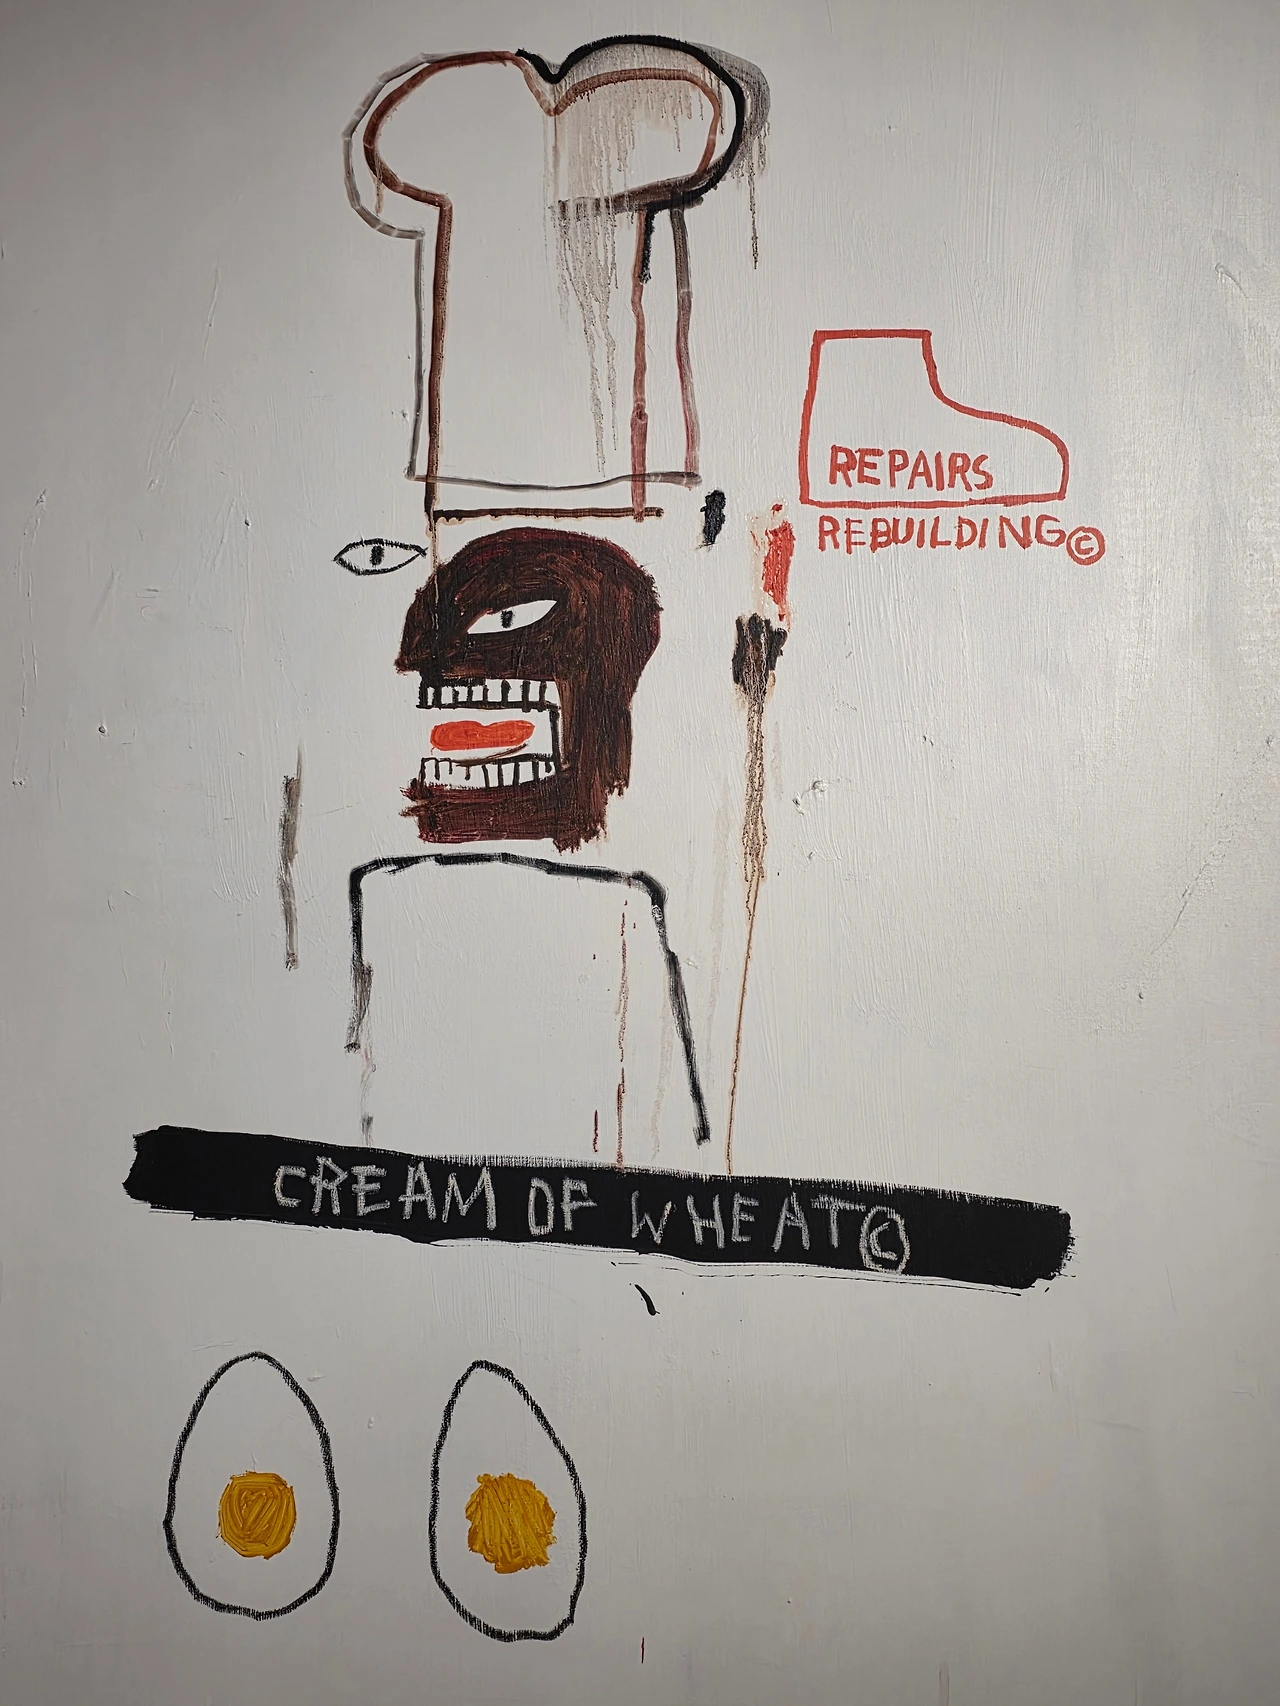 REPAIRS
REBUILDING©
CREAM OF WHEAT©